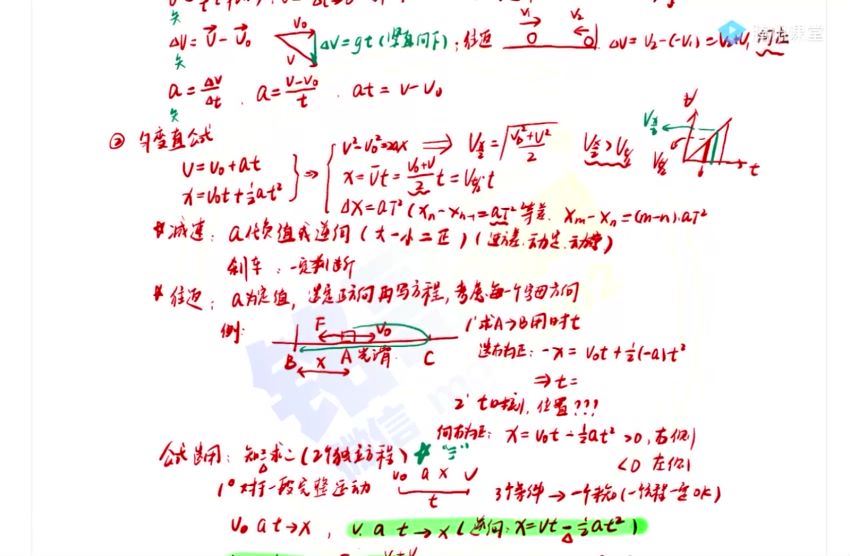 矢
ΔV = V⃗ - V⃗₀  V₀  V  ΔV = gt (竖直向下); 往返  V₁  V₂  ΔV = V₂-(-V₁) = V₂+V₁ 向左
矢
a = ΔV/Δt . a = (V-V₀)/t . at = V-V₀
矢
② 匀变直公式
V = V₀ + at
x = V₀t + ½at²
V²-V₀² = 2ax ⇒ Vx/2 = √((V₀²+V²)/2)  Vx/2 > Vt/2
x = V̄t = (V₀+V)/2 t = Vt/2·t
Δx = aT² (xn - xn-1 = aT² 等差. xm - xn = (m-n)·aT²
V  t
减速: a代负值或逆向 (大-小=正)
刹车: 一定判断
往返: a为定值, 选定正方向再写方程, 考虑每一个字母方向
例: F  V₀
B  x  A 光滑  C
1' 求A→B用时t
选右为正: -x = V₀t + ½(-a)t²
⇒ t =
2' t时刻, 位置???
向右为正: x = V₀t - ½at² >0, 右侧
<0 左侧
公式选用: 知三求二 (2个独立方程) "三"
1° 对于一段完整运动  V₀ a x V  t  3个条件 → 一个未知 (一个方程一定OK)
V₀ a t → x , V. a t → x (逆向: x = Vt - ½at²)